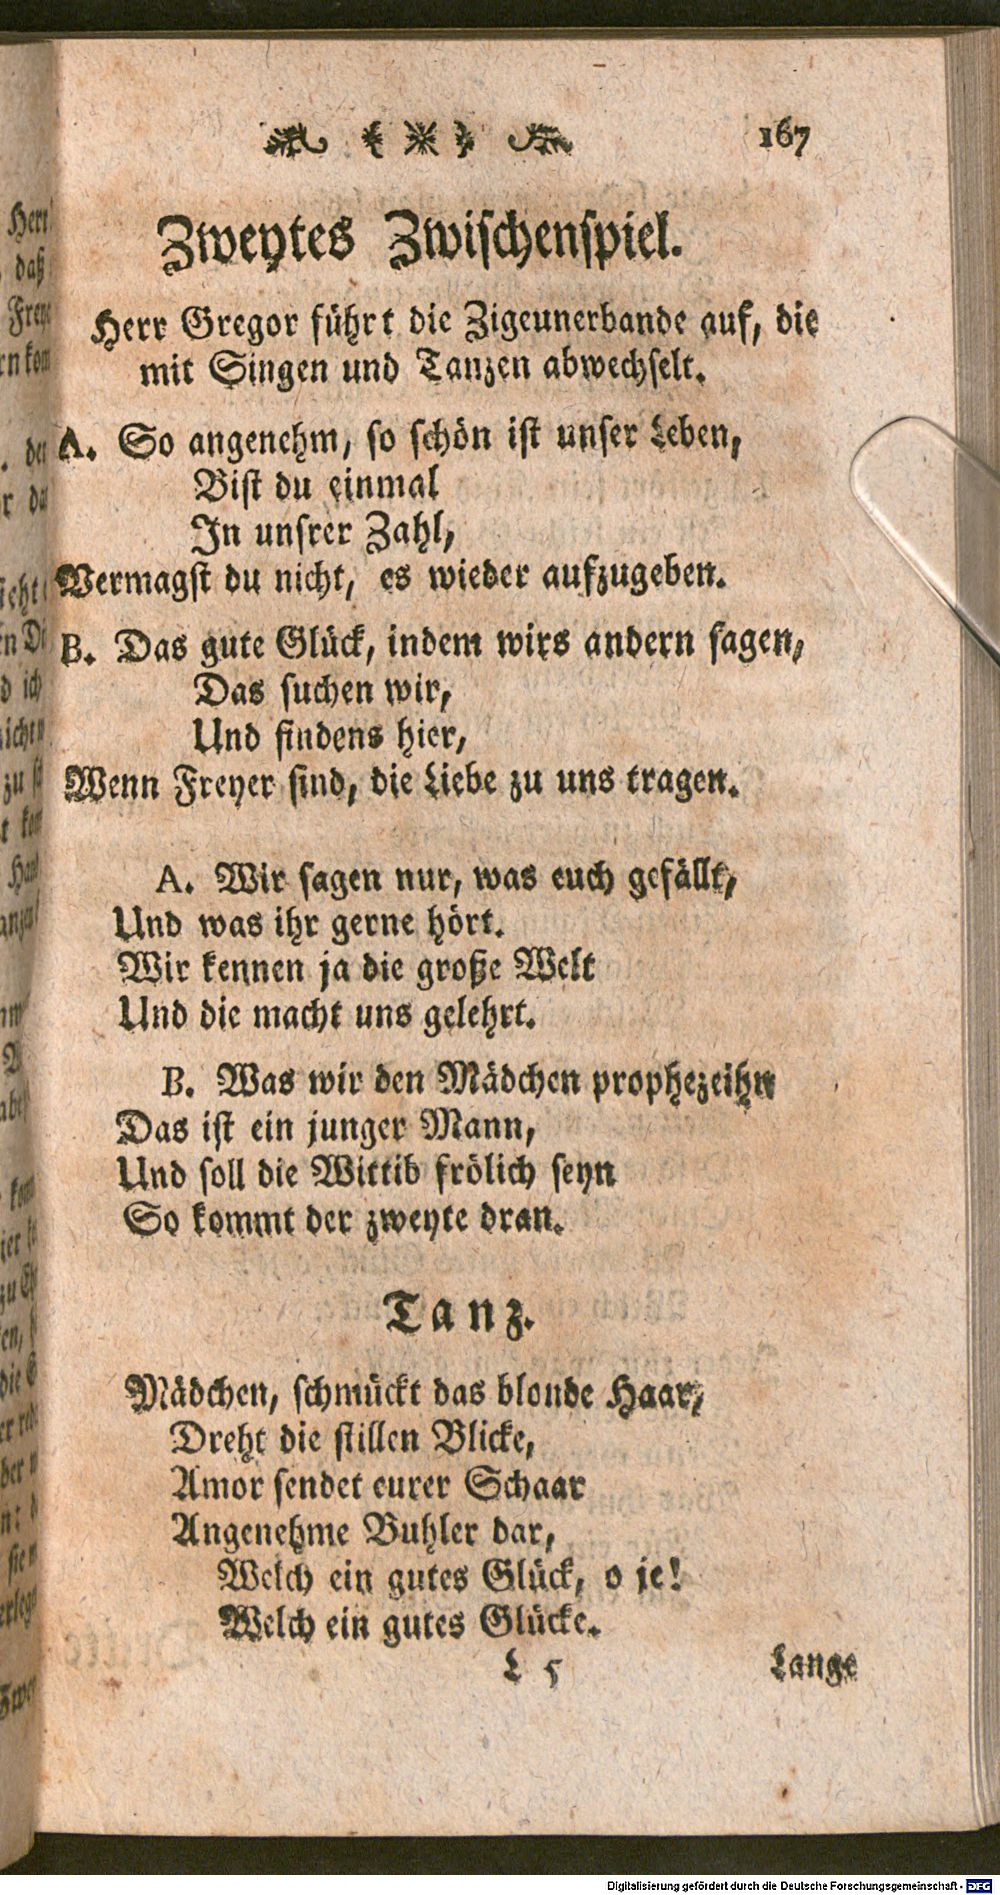 167
Zweytes Zwischenspiel.
Herr Gregor führt die Zigeunerbande auf, die
mit Singen und Tanzen abwechselt.
A. So angenehm, so schön ist unser Leben,
Bist du einmal
In unsrer Zahl,
Vermagst du nicht, es wieder aufzugeben.
B. Das gute Glück, indem wirs andern sagen,
Das suchen wir,
Und findens hier,
Wenn Freyer sind, die Liebe zu uns tragen.
A. Wir sagen nur, was euch gefällt,
Und was ihr gerne hört.
Wir kennen ja die große Welt
Und die macht uns gelehrt.
B. Was wir den Mädchen prophezeihn
Das ist ein junger Mann,
Und soll die Wittib frölich seyn
So kommt der zweyte dran.
Tanz.
Mädchen, schmückt das blonde Haar,
Dreht die stillen Blicke,
Amor sendet eurer Schaar
Angenehme Buhler dar,
Welch ein gutes Glück, o je!
Welch ein gutes Glücke.
L 5 Lange
Digitalisierung gefördert durch die Deutsche Forschungsgemeinschaft - DFG